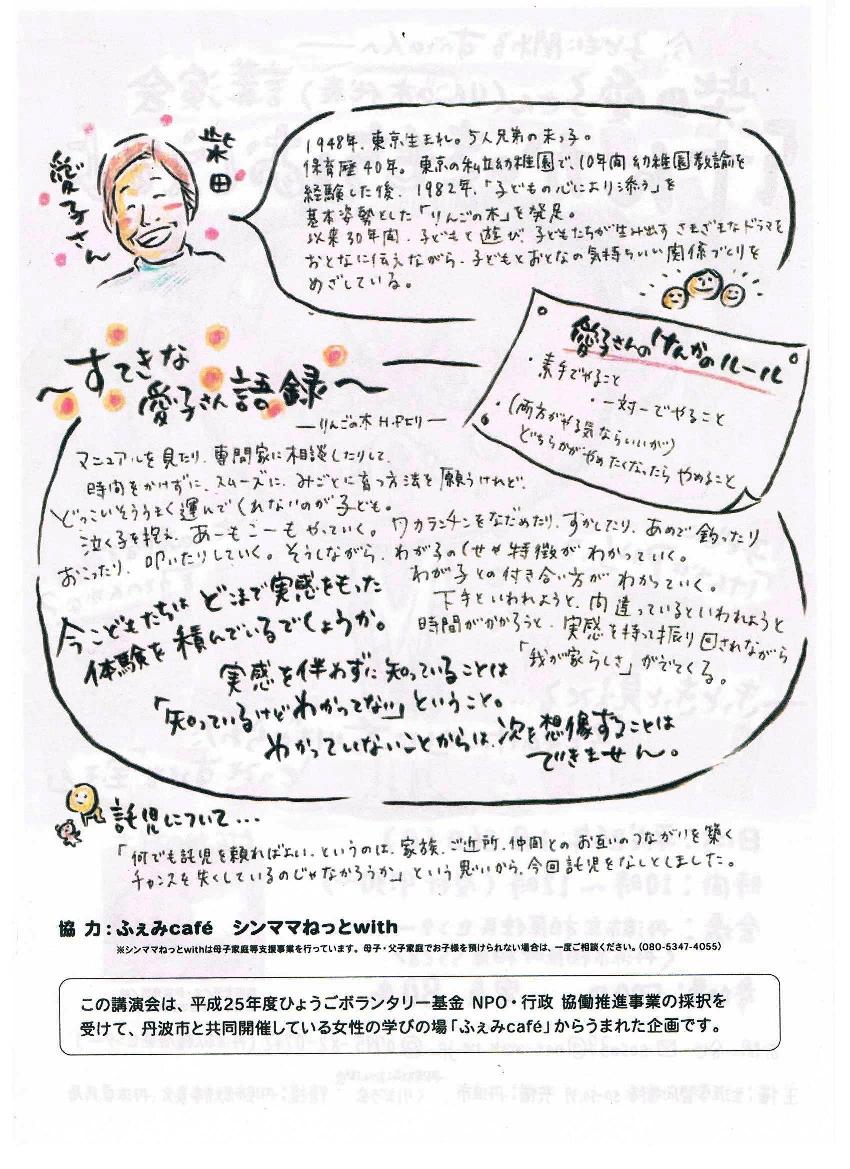 柴田
愛子さん
1948年、東京生まれ。5人兄弟の末っ子。
保育歴40年。東京の私立幼稚園で、10年間幼稚園教諭を
経験した後、1982年、「子どもの心により添う」を
基本姿勢とした「りんごの木」を発足。
以来30年間、子どもと遊び、子どもたちが生み出すさまざまなドラマを
おとなに伝えながら、子どもとおとなの気持ちいい関係づくりを
めざしている。
愛子さんのけんかのルール
・素手でやること
・一対一でやること
・(両方がやる気ならいいが)
どちらかがやめたくなったらやめること
〜すてきな
愛子さん語録〜
―りんごの木H.Pより―
マニュアルを見たり、専門家に相談したりして、
時間をかけずに、スムーズに、みごとに育つ方法を願うけれど、
どっこいそううまく運んでくれないのが子ども。
泣く子を抱え、あーもこーもやっていく。ワカランチンをなだめたり、すかしたり、あめで釣ったり
おこったり、叩いたりしていく。そうしながら、わが子のくせや特徴がわかっていく。
わが子との付き合い方がわかっていく。
下手といわれようと、間違っているといわれようと
時間がかかろうと、実感を持って振り回されながら
「我が家らしさ」がでてくる。
今こどもたちはどこまで実感をもった
体験を積んでいるでしょうか。
実感を伴わずに知っていることは
「知っているけどわかってない」ということ。
わかっていないことからは、次を想像することは
できません。
託児について…
「何でも託児を頼ればよい、というのは、家族、ご近所、仲間とのお互いのつながりを築く
チャンスを失くしているのじゃなかろうか」という思いから、今回託児をなしとしました。
協 力：ふぇみcafé　シンママねっとwith
※シンママねっとwithは母子家庭等支援事業を行っています。母子・父子家庭でお子様を預けられない場合は、一度ご相談ください。（080-5347-4055）
この講演会は、平成25年度ひょうごボランタリー基金 NPO・行政 協働推進事業の採択を
受けて、丹波市と共同開催している女性の学びの場「ふぇみcafé」からうまれた企画です。